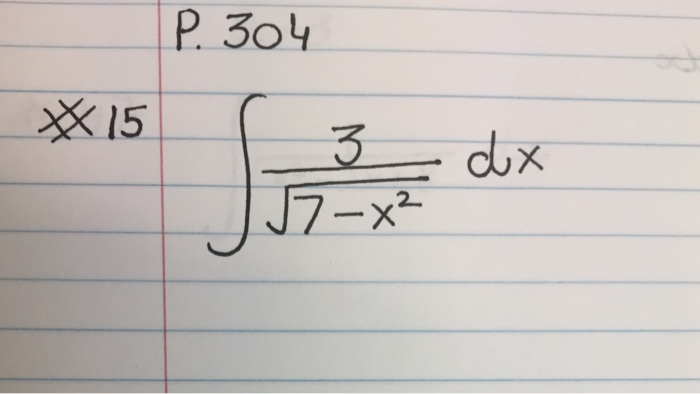 P. 304
XX 15 ∫ 3/√(7-x²) dx